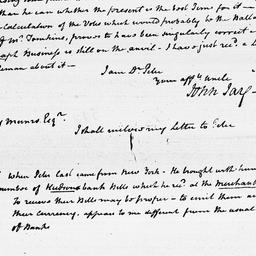 than he can whether the present is the best Time for it —
Calculation of the Votes which would probably be the Ballo
of Mr. Tomkins, proves to have been singularly correct —
Business is still on the anvil — I have just recd. a L
about it —
I am Dr. Peter
Your affte. uncle
John Jay
Munro Esqr.
I shall enclose my Letter to Peter
When Peter last came from New York. He brought with him
number of Hudson bank Bills which he recd. at the Merchant
To receive their Bills may be proper — to emit them an
their currency, appears to me different from the usual
of Banks